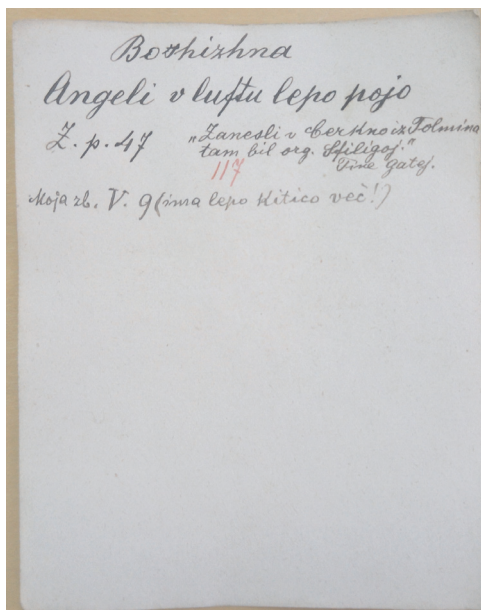 Bozhizhna
Angeli v luftu lepo pojo
Ž. p. 47 „Zanesli v Cerkno iz Tolmina
tam bil org. Sfiligoj."
Tine Gatej.
117
Moja zb. V. 9 (ima lepo kitico več!)